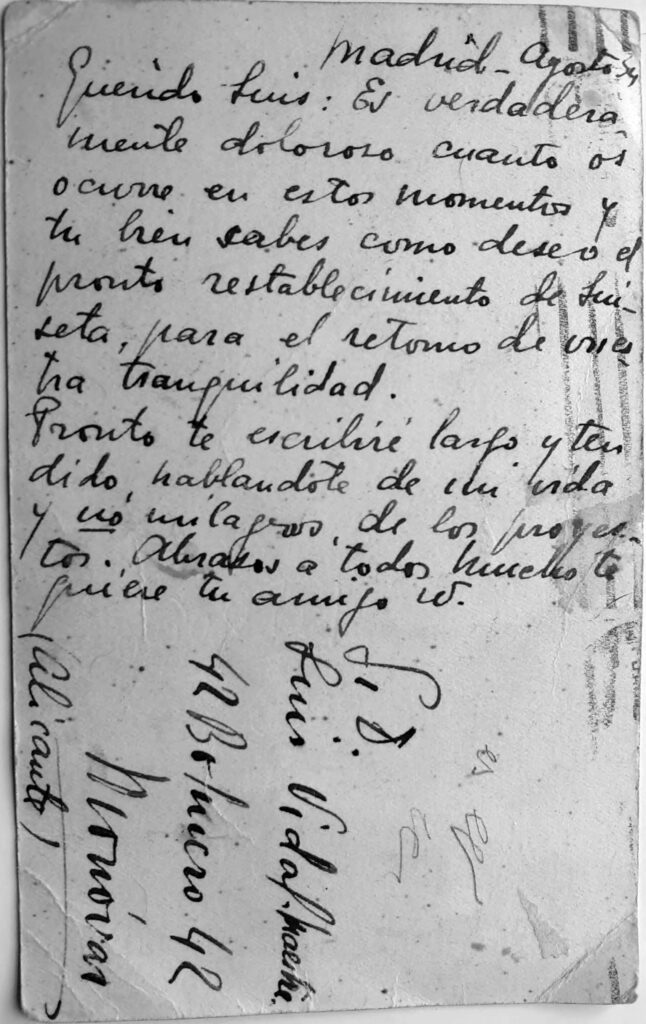 Madrid - Agosto 34
Querido Luis: Es verdadera
mente doloroso cuanto os
ocurre en estos momentos y
tu bien sabes como deseo el
pronto restablecimiento de Lui-
seta, para el retorno de vues
tra tranquilidad.
Pronto te escribiré largo y ten
dido, hablandote de mi vida
y no milagros, de los proyec-
tos. Abrazos a todos mucho te
quiere tu amigo
S. D.
Luis Vidal. Maestre
42 Bo/nuero 42
Monóvar
(Alicante)